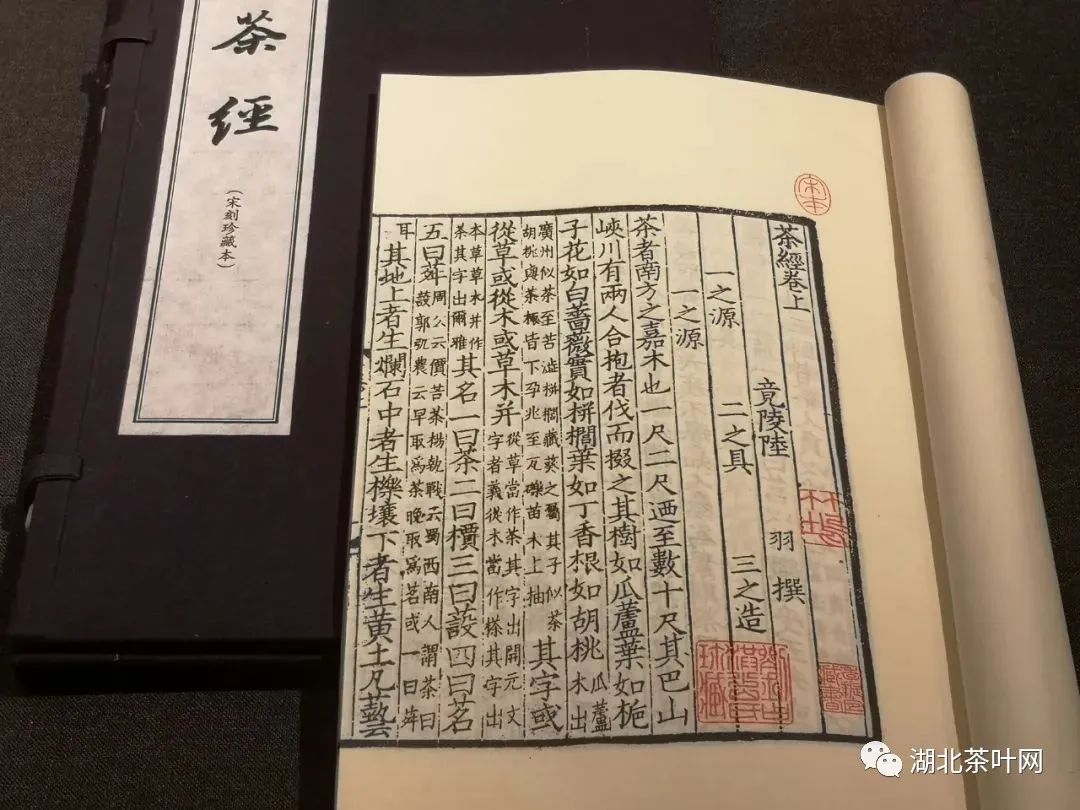 茶經
(宋刻珍藏本)
宋本
茶經卷上
竟陵陸 羽 撰
一之源 二之具 三之造
一之源
茶者南方之嘉木也一尺二尺迺至數十尺其巴山
峽川有兩人合抱者伐而掇之其樹如瓜蘆葉如梔
子花如白薔薇實如栟櫚葉如丁香根如胡桃 瓜蘆木出
廣州似茶至苦澁栟櫚蒲葵之屬其子似茶
胡桃與茶根皆下孕兆至瓦礫苗木上抽 其字或
從草或從木或草木并 從草當作茶其字出開元文
字者義從木當作㮆其字出
本草草木并作
茶其字出爾雅 其名一曰茶二曰檟三曰蔎四曰茗
五曰荈 周公云檟苦茶楊執戟云蜀西南人謂茶曰
蔎郭弘農云早取為茶晚取為茗或一曰荈
耳 其地上者生爛石中者生櫟壤下者生黃土凡藝
湖北茶叶网